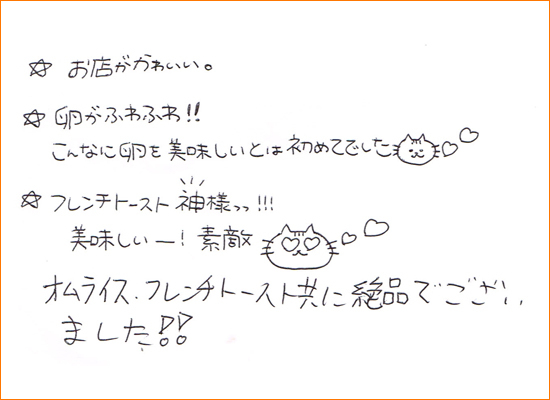 ☆ お店がかわいい。
☆ 卵がふわふわ!!
こんなに卵を美味しいとは初めてでした
☆ フレンチトースト 神様っっ!!!
美味しいー! 素敵
オムライス、フレンチトースト共に絶品でござい
ました!!